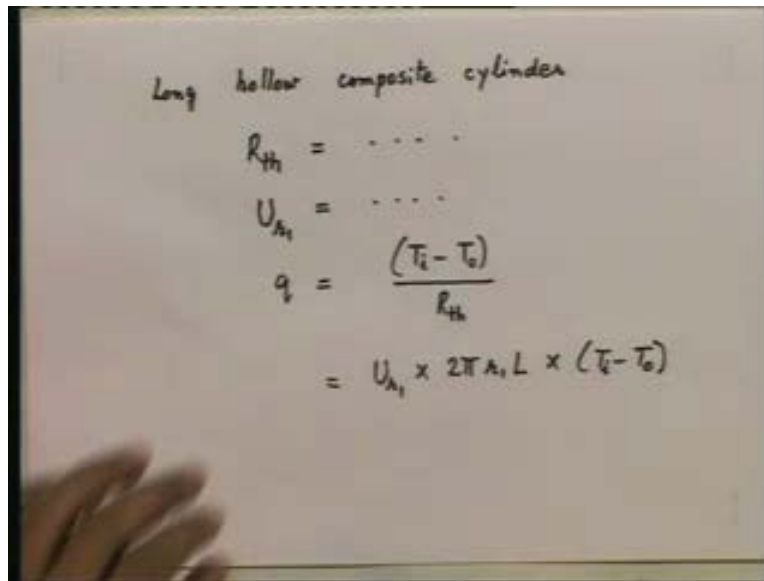 Long hollow composite cylinder
R_th = . . . .
U_r₁ = . . . .
q = (T_i - T_o) / R_th
= U_r₁ × 2π r₁ L × (T_i - T_o)